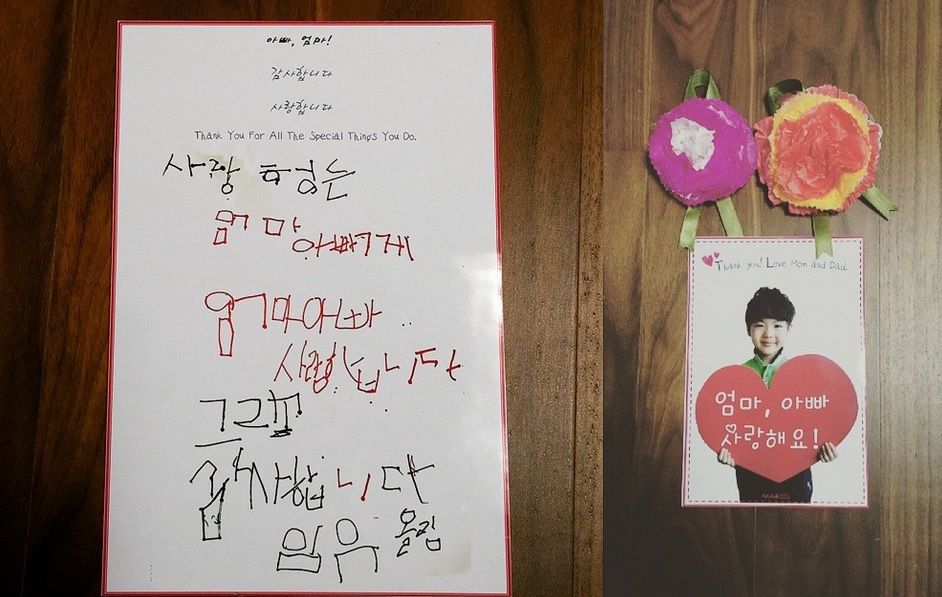 아빠, 엄마!
감사합니다
사랑합니다
Thank You For All The Special Things You Do.
사랑
엄마 아빠에게
엄마아빠
사랑합니다
감사합니다
올림
Thank you! Love Mom and Dad.
엄마, 아빠
사랑해요!